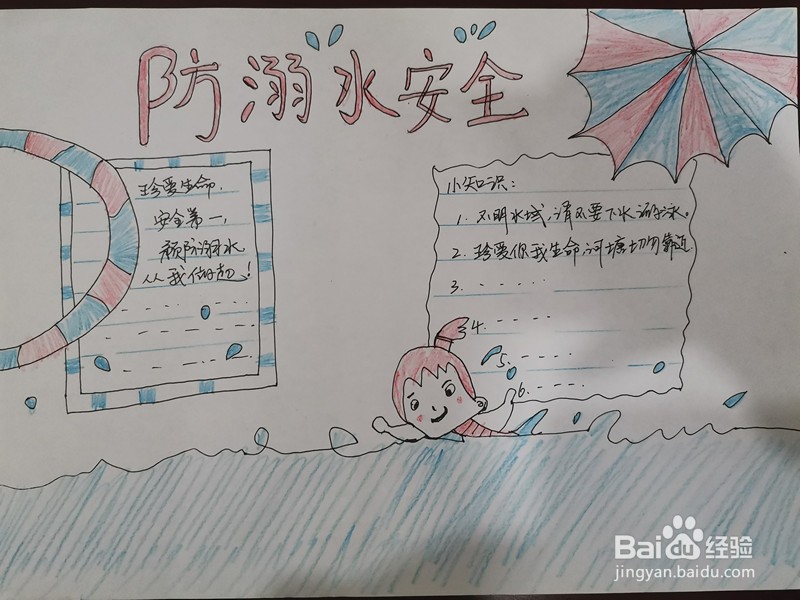 防溺水安全
珍爱生命,
安全第一,
预防溺水
从我做起!
小知识:
1. 不明水域,请不要下水游泳。
2. 珍爱你我生命,河塘切勿靠近.
3.
4.
5.
6.
Baidu经验
jingyan.baidu.com